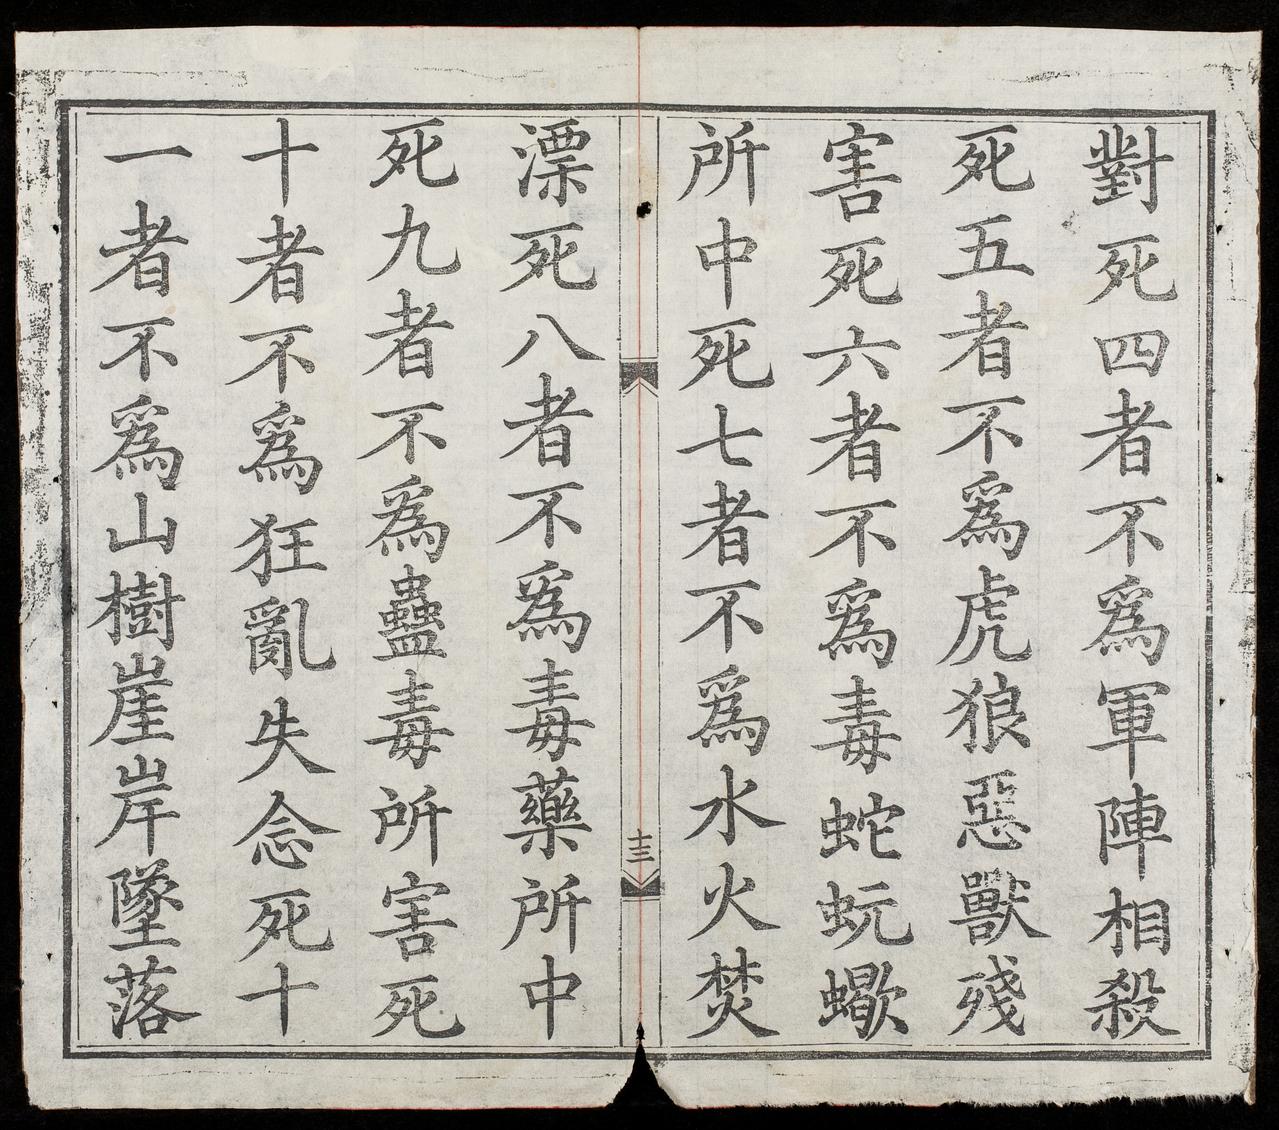 對死四者不爲軍陣相殺
死五者不爲虎狼惡獸殘
害死六者不爲毒蛇蚖蠍
所中死七者不爲水火焚
十三
漂死八者不爲毒藥所中
死九者不爲蠱毒所害死
十者不爲狂亂失念死十
一者不爲山樹崖岸墜落